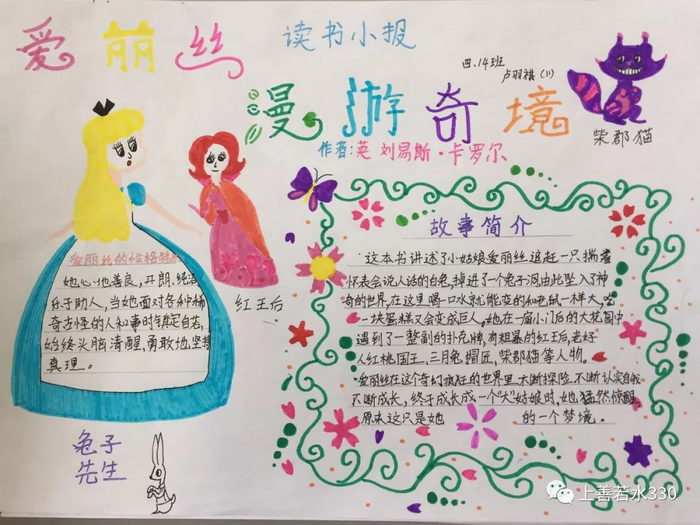 爱丽丝 读书小报
四.14班
卢羽祺(11)
漫游奇境
作者:英 刘易斯·卡罗尔
柴郡猫
红王后
爱丽丝的性格特点
她心地善良,开朗、纯洁
乐于助人,当她面对各种稀
奇古怪的人和事时镇定自若,
始终头脑清醒,勇敢地坚持
真理。
兔子
先生
故事简介
这本书讲述了小姑娘爱丽丝追赶一只揣着
怀表会说人话的白兔,掉进了一个兔子洞,由此坠入了神
奇的世界,在这里喝一口水就能变的和老鼠一样大,吃
一块蛋糕又会变成巨人,她在一扇小门后的大花园中
遇到了一整副的扑克牌,有粗暴的红王后,老好
人红桃国王、三月兔、帽匠、柴郡猫等人物。
爱丽丝在这个奇幻疯狂的世界里,不断探险,不断认识自我
不断成长,终于成长成一个"大"好娘时,她猛然惊醒
原来这只是她 的一个梦境。
上善若水330